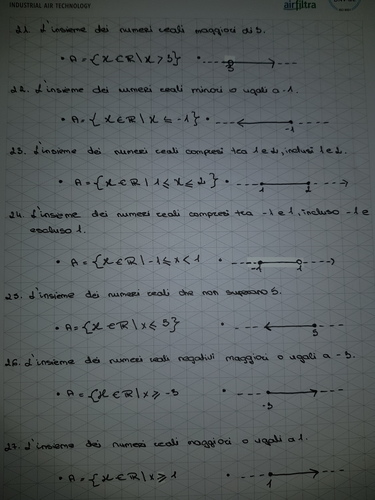 INDUSTRIAL AIR TECHNOLOGY airfiltra
21. L'insieme dei numeri reali maggiori di 5.
• A = {x ∈ ℝ \ x > 5} •
5
22. L'insieme dei numeri reali minori o uguali a -1.
• A = { x ∈ ℝ | x ≤ -1} •
-1
23. L'insieme dei numeri reali compresi tra 1 e 2, inclusi 1 e 2.
• A = {x ∈ ℝ | 1 ≤ x ≤ 2} •
1 2
24. L'insieme dei numeri reali compresi tra -1 e 1, incluso -1 e
escluso 1.
• A = {x ∈ ℝ | -1 ≤ x < 1 •
-1 1
25. L'insieme dei numeri reali che non superano 5.
• A = {x ∈ ℝ \ x ≤ 5} •
5
26. L'insieme dei numeri reali negativi maggiori o uguali a -5.
• A = {x ∈ ℝ \ x ≥ -5 •
-5
27. L'insieme dei numeri reali maggiori o uguali a 1.
• A = {x ∈ ℝ \ x ≥ 1 •
1